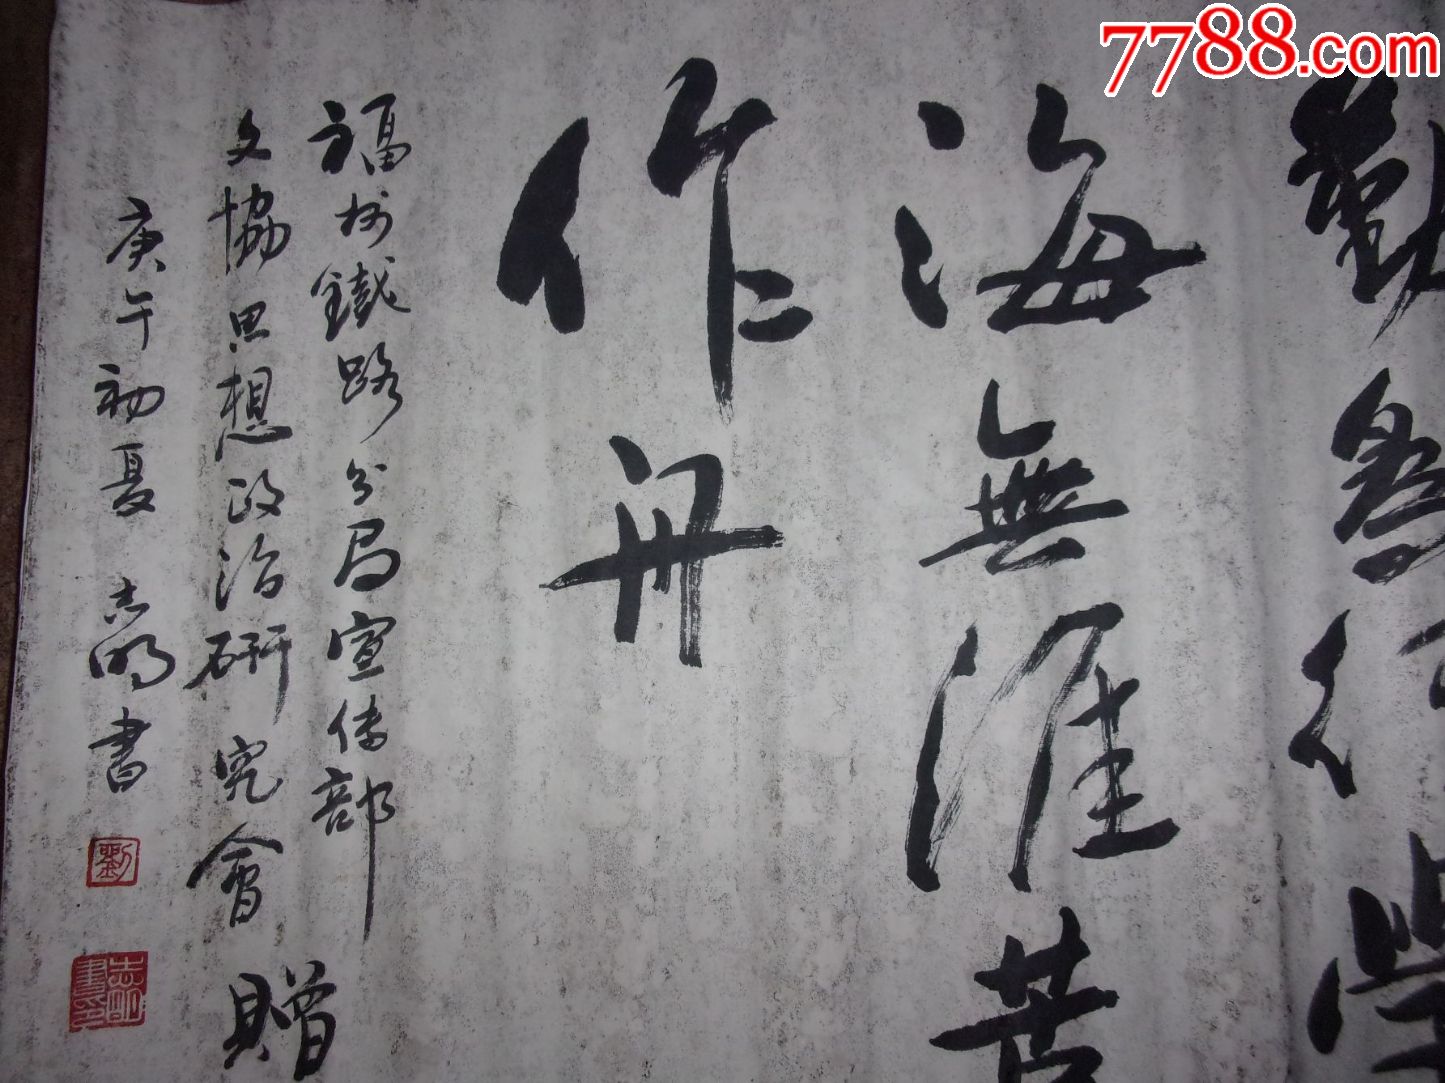 7788.com
勤為徑學
海無涯苦
作舟
福州鐵路分局宣传部
文協思想政治研究會贈
庚午初夏 志明書
劉
志明書印